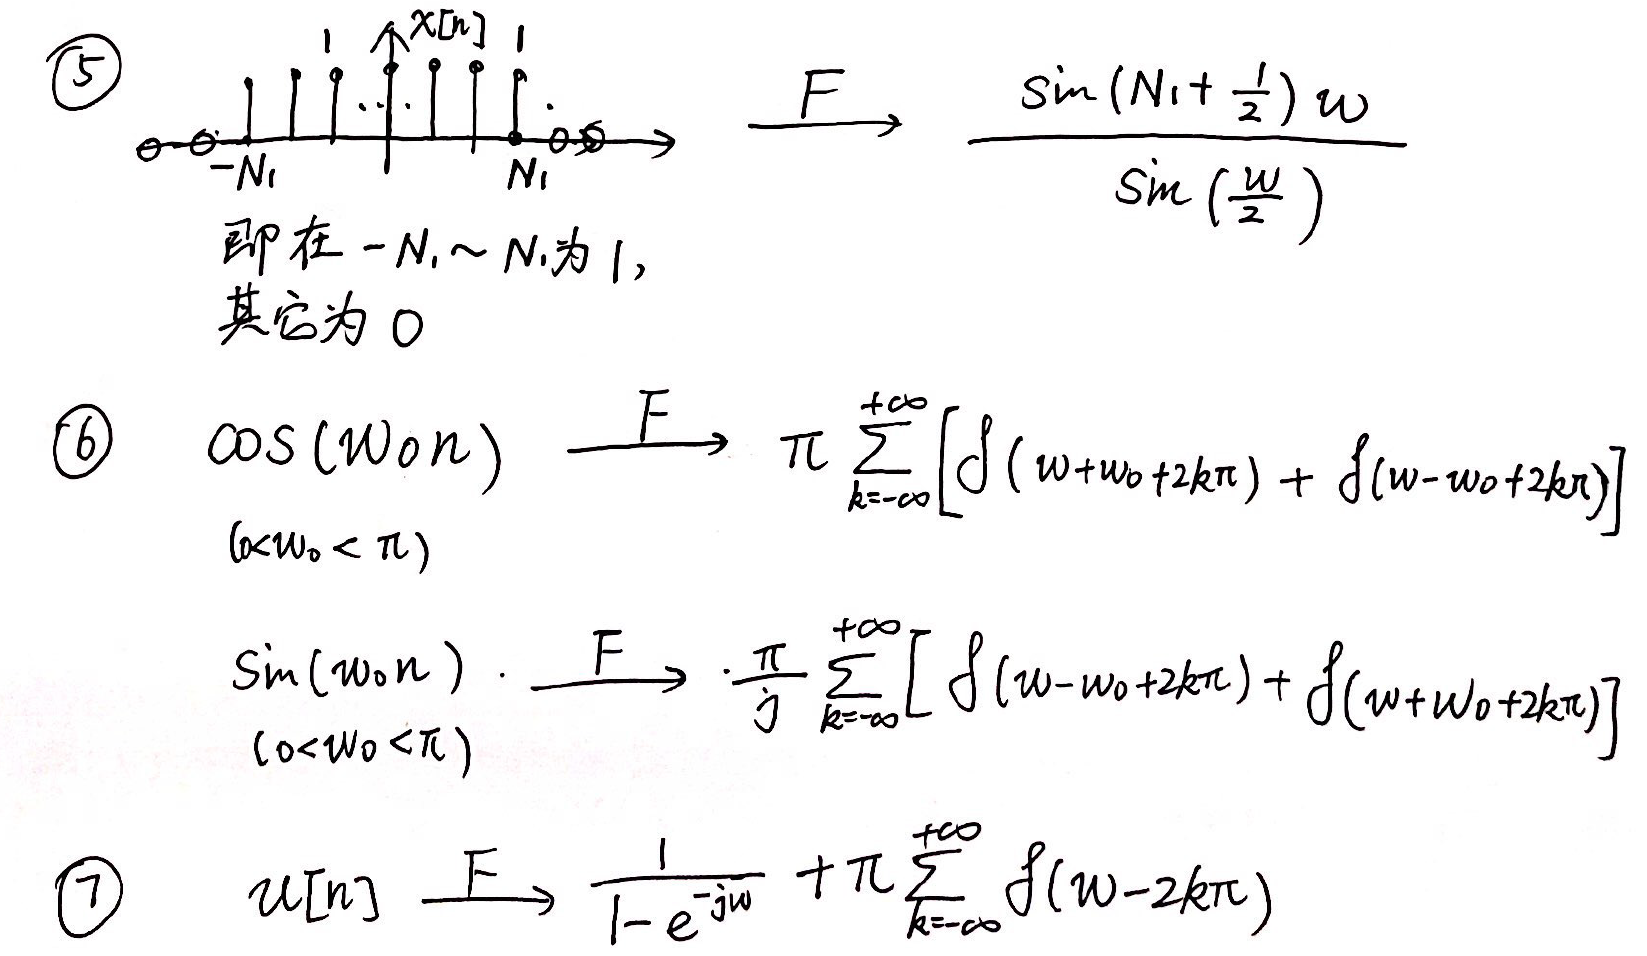 ⑤ x[n] 1 1 -N₁ N₁ —F→ sin(N₁+½)w / sin(w/2)
即在 -N₁~N₁为1,
其它为0
⑥ cos(w₀n) —F→ π ∑_{k=-∞}^{+∞} [δ(w+w₀+2kπ) + δ(w-w₀+2kπ)]
(0<w₀<π)
sin(w₀n) —F→ π/j ∑_{k=-∞}^{+∞} [δ(w-w₀+2kπ) + δ(w+w₀+2kπ)]
(0<w₀<π)
⑦ u[n] —F→ 1/(1-e^{-jw}) + π ∑_{k=-∞}^{+∞} δ(w-2kπ)